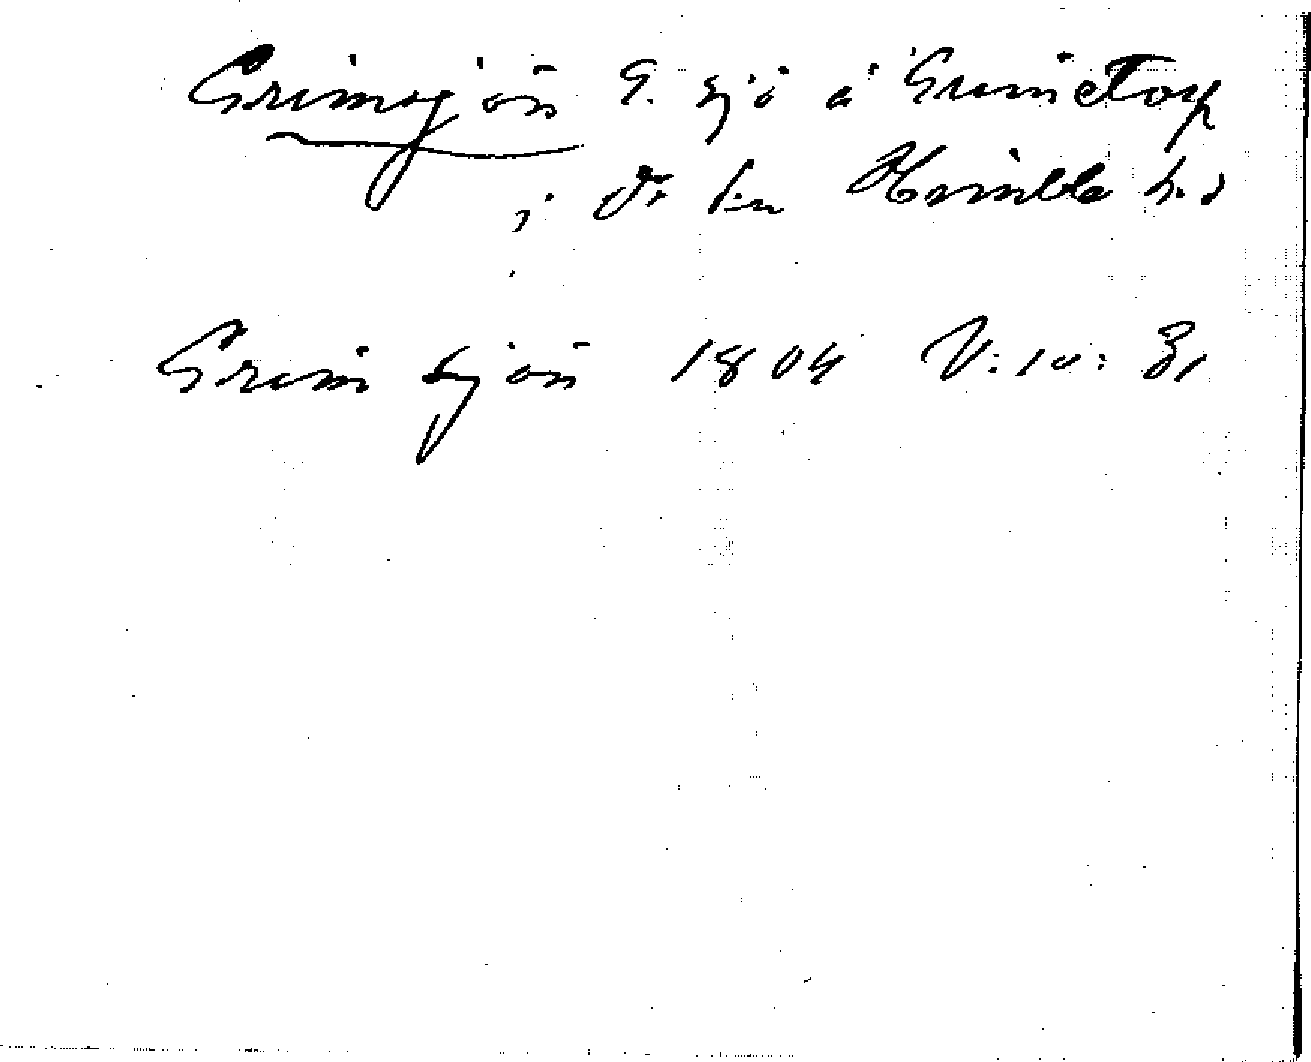 Grimsjön G. sjö å Grimstorp
i Ör sn Kville hd
Grim sjön 1804 V:10:31